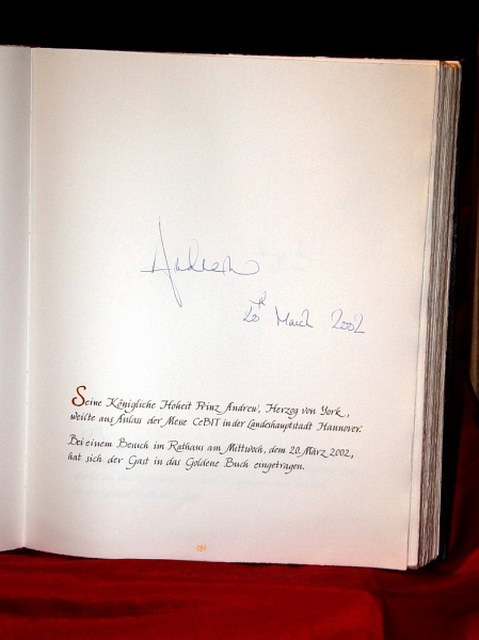 Andrew
20th March 2002
Seine Königliche Hoheit Prinz Andrew, Herzog von York,
weilte aus Anlass der Messe CeBIT in der Landeshauptstadt Hannover.
Bei einem Besuch im Rathaus am Mittwoch, dem 20. März 2002,
hat sich der Gast in das Goldene Buch eingetragen.